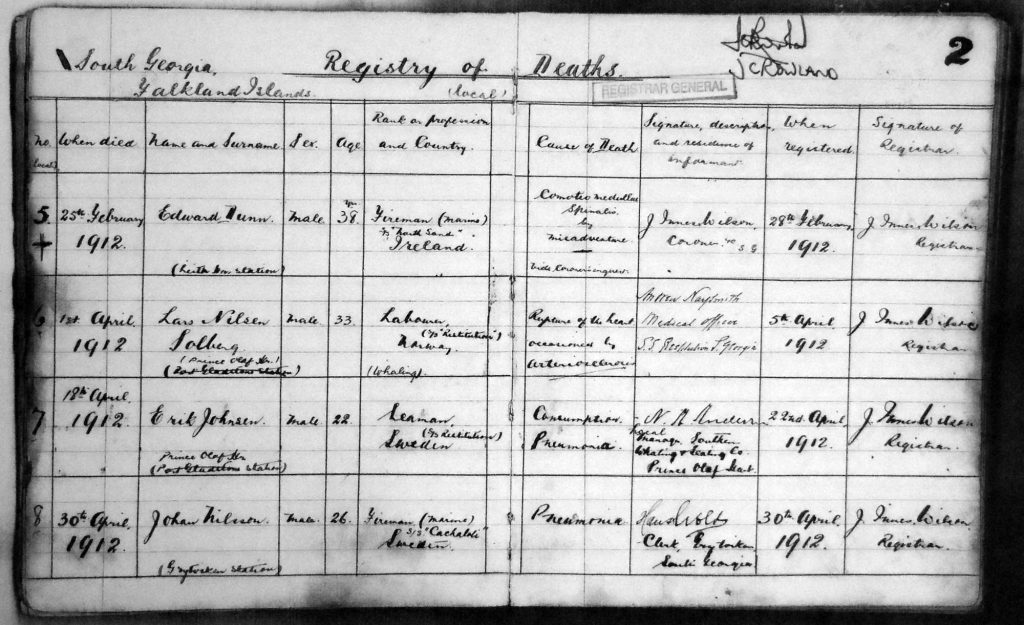 South Georgia,
Falkland Islands.
Registry of Deaths.
(local)
REGISTRAR GENERAL
J C ROWLAND
2
No. (local)
When died
Name and Surname
Sex.
Age
Rank or profession
and Country.
Cause of Death
Signature, description,
and residence of
Informant
When
registered
Signature of
Registrar.
5
25th February
1912.
Edward Dunn.
(Leith Hr. Station)
Male
38
Fireman (marine)
"North Sand"
Ireland.
Comotio medullae
Spinalis
by
misadventure
Vide Coroner's inquest
J Innes Wilson,
Coroner S G
28th February
1912.
J Innes Wilson
Registrar
6
1st April
1912
Lars Nilsen
Solberg
(Prince Olaf Hr.)
(Port Gladstone Station)
Male
33.
Labourer
(S/S "Restitution")
Norway.
(Whaling).
Rupture of the heart
occasioned by
arteriosclerosis
Naysmith
Medical Officer
S.S Restitution S. Georgia
5th April
1912
J Innes Wilson
Registrar
7
18th April
1912
Erik Johnsen
Prince Olaf Hr
(Port Gladstone Station)
Male
22.
Seaman,
(S/S Restitution)
Sweden
Consumption.
Pneumonia
Local
Manager Southern
Whaling & Sealing Co
Prince Olaf
22nd April
1912.
J Innes Wilson
Registrar.
8
30th April,
1912.
Johan Nilsson.
(Grytviken Station)
Male
26.
Fireman (marine)
S/S "Cachalote"
Sweden.
Pneumonia
Clerk, Grytviken
South Georgia
30th April
1912.
J Innes Wilson,
Registrar.